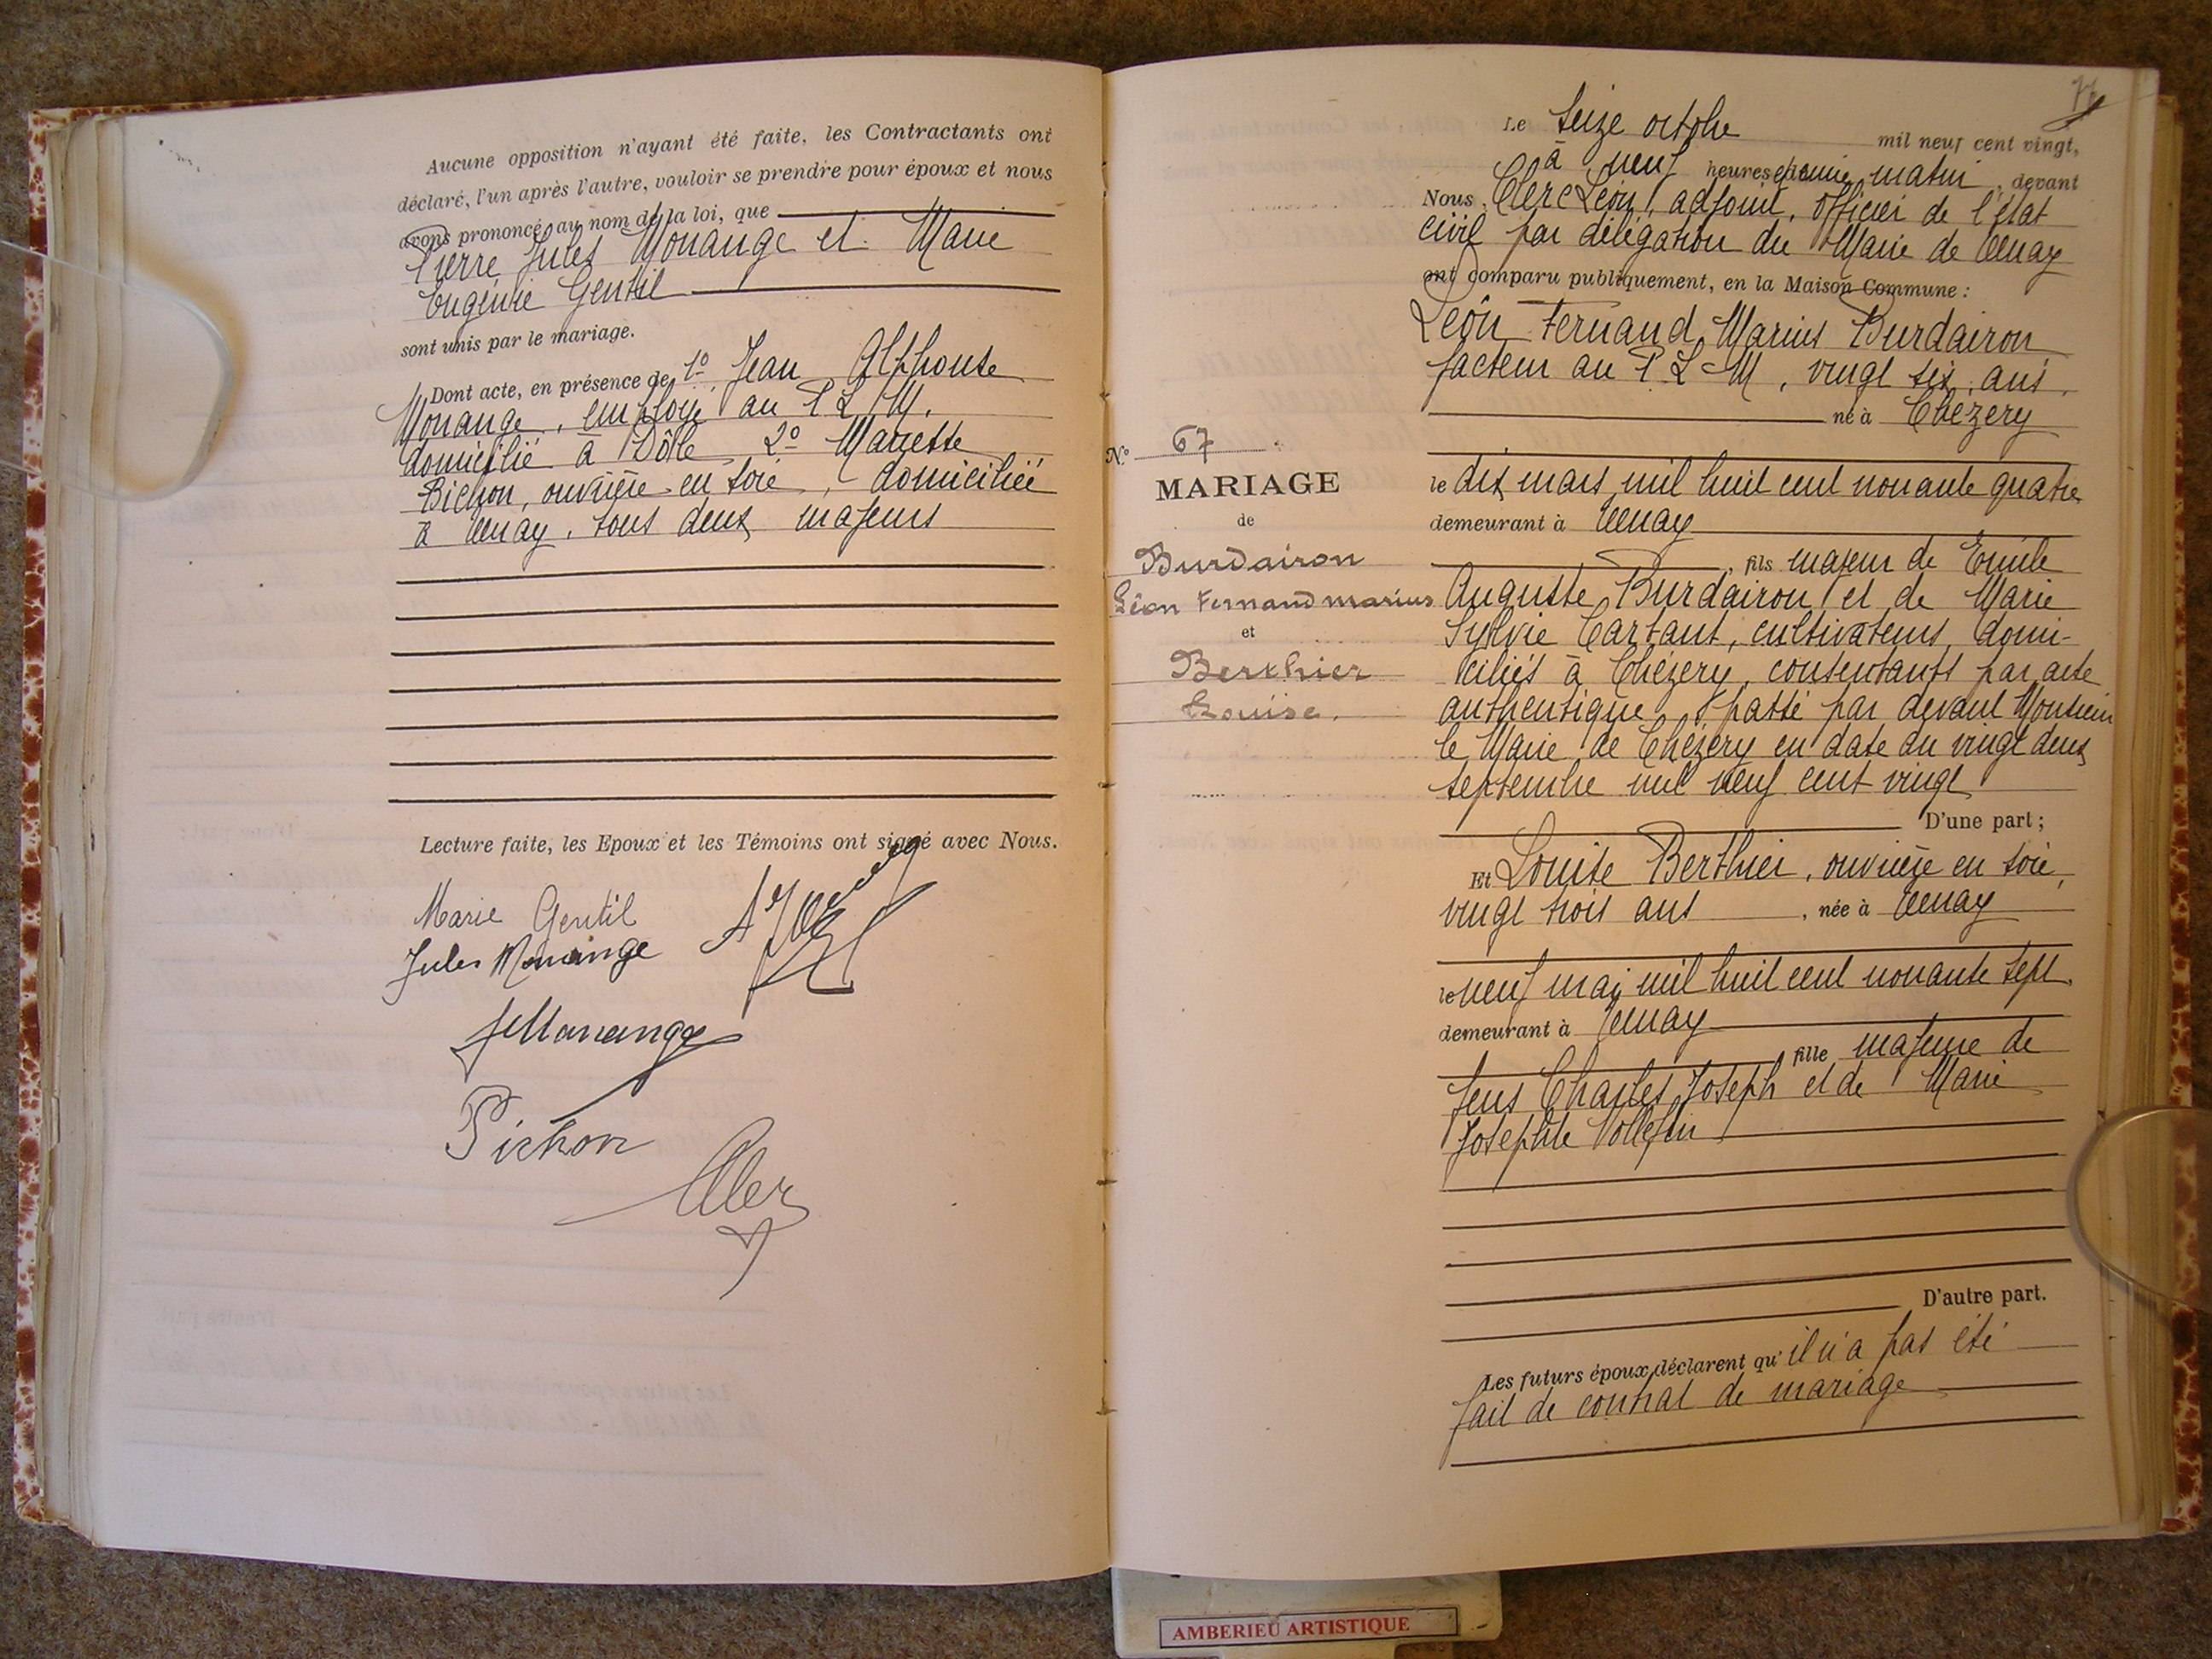 Aucune opposition n'ayant été faite, les Contractants ont
déclaré, l'un après l'autre, vouloir se prendre pour époux et nous
avons prononcé, au nom de la loi, que
Pierre Jules Monange et Marie
Eugénie Gentil
sont unis par le mariage.
Dont acte, en présence de 1º Jean Alphonse
Monange, employé au P L M,
domicilié à Dôle 2º Mariette
Bichon, ouvrière en soie, domiciliée
à Tenay, tous deux majeurs
Lecture faite, les Epoux et les Témoins ont signé avec Nous.
Marie Gentil
Jules Monange
Monange
Pichon
Clerc
74
Le seize octobre mil neuf cent vingt,
à neuf heures et demie matin, devant
Nous, Clerc Léon, adjoint, officier de l'état
civil par délégation du Maire de Tenay
ont comparu publiquement, en la Maison Commune :
Léon Fernand Marius Burdairon
facteur au P L M, vingt six ans,
né à Chézery
N.º 67
MARIAGE
de
Burdairon
Léon Fernand Marius
et
Berthier
Louise.
le dix mars mil huit cent nonante quatre
demeurant à Tenay
, fils majeur de Emile
Auguste Burdairon et de Marie
Sylvie Cartant, cultivateurs, domi-
ciliés à Chézery, consentants par acte
authentique passé par devant Monsieur
le Maire de Chézery en date du vingt deux
septembre mil neuf cent vingt
D'une part ;
Et Louise Berthier, ouvrière en soie,
vingt trois ans , née à Tenay
le neuf mai mil huit cent nonante sept
demeurant à Tenay
fille majeure de
feus Charles Joseph et de Marie
Josephte
D'autre part.
Les futurs époux déclarent qu'il n'a pas été
fait de contrat de mariage
AMBERIEU ARTISTIQUE